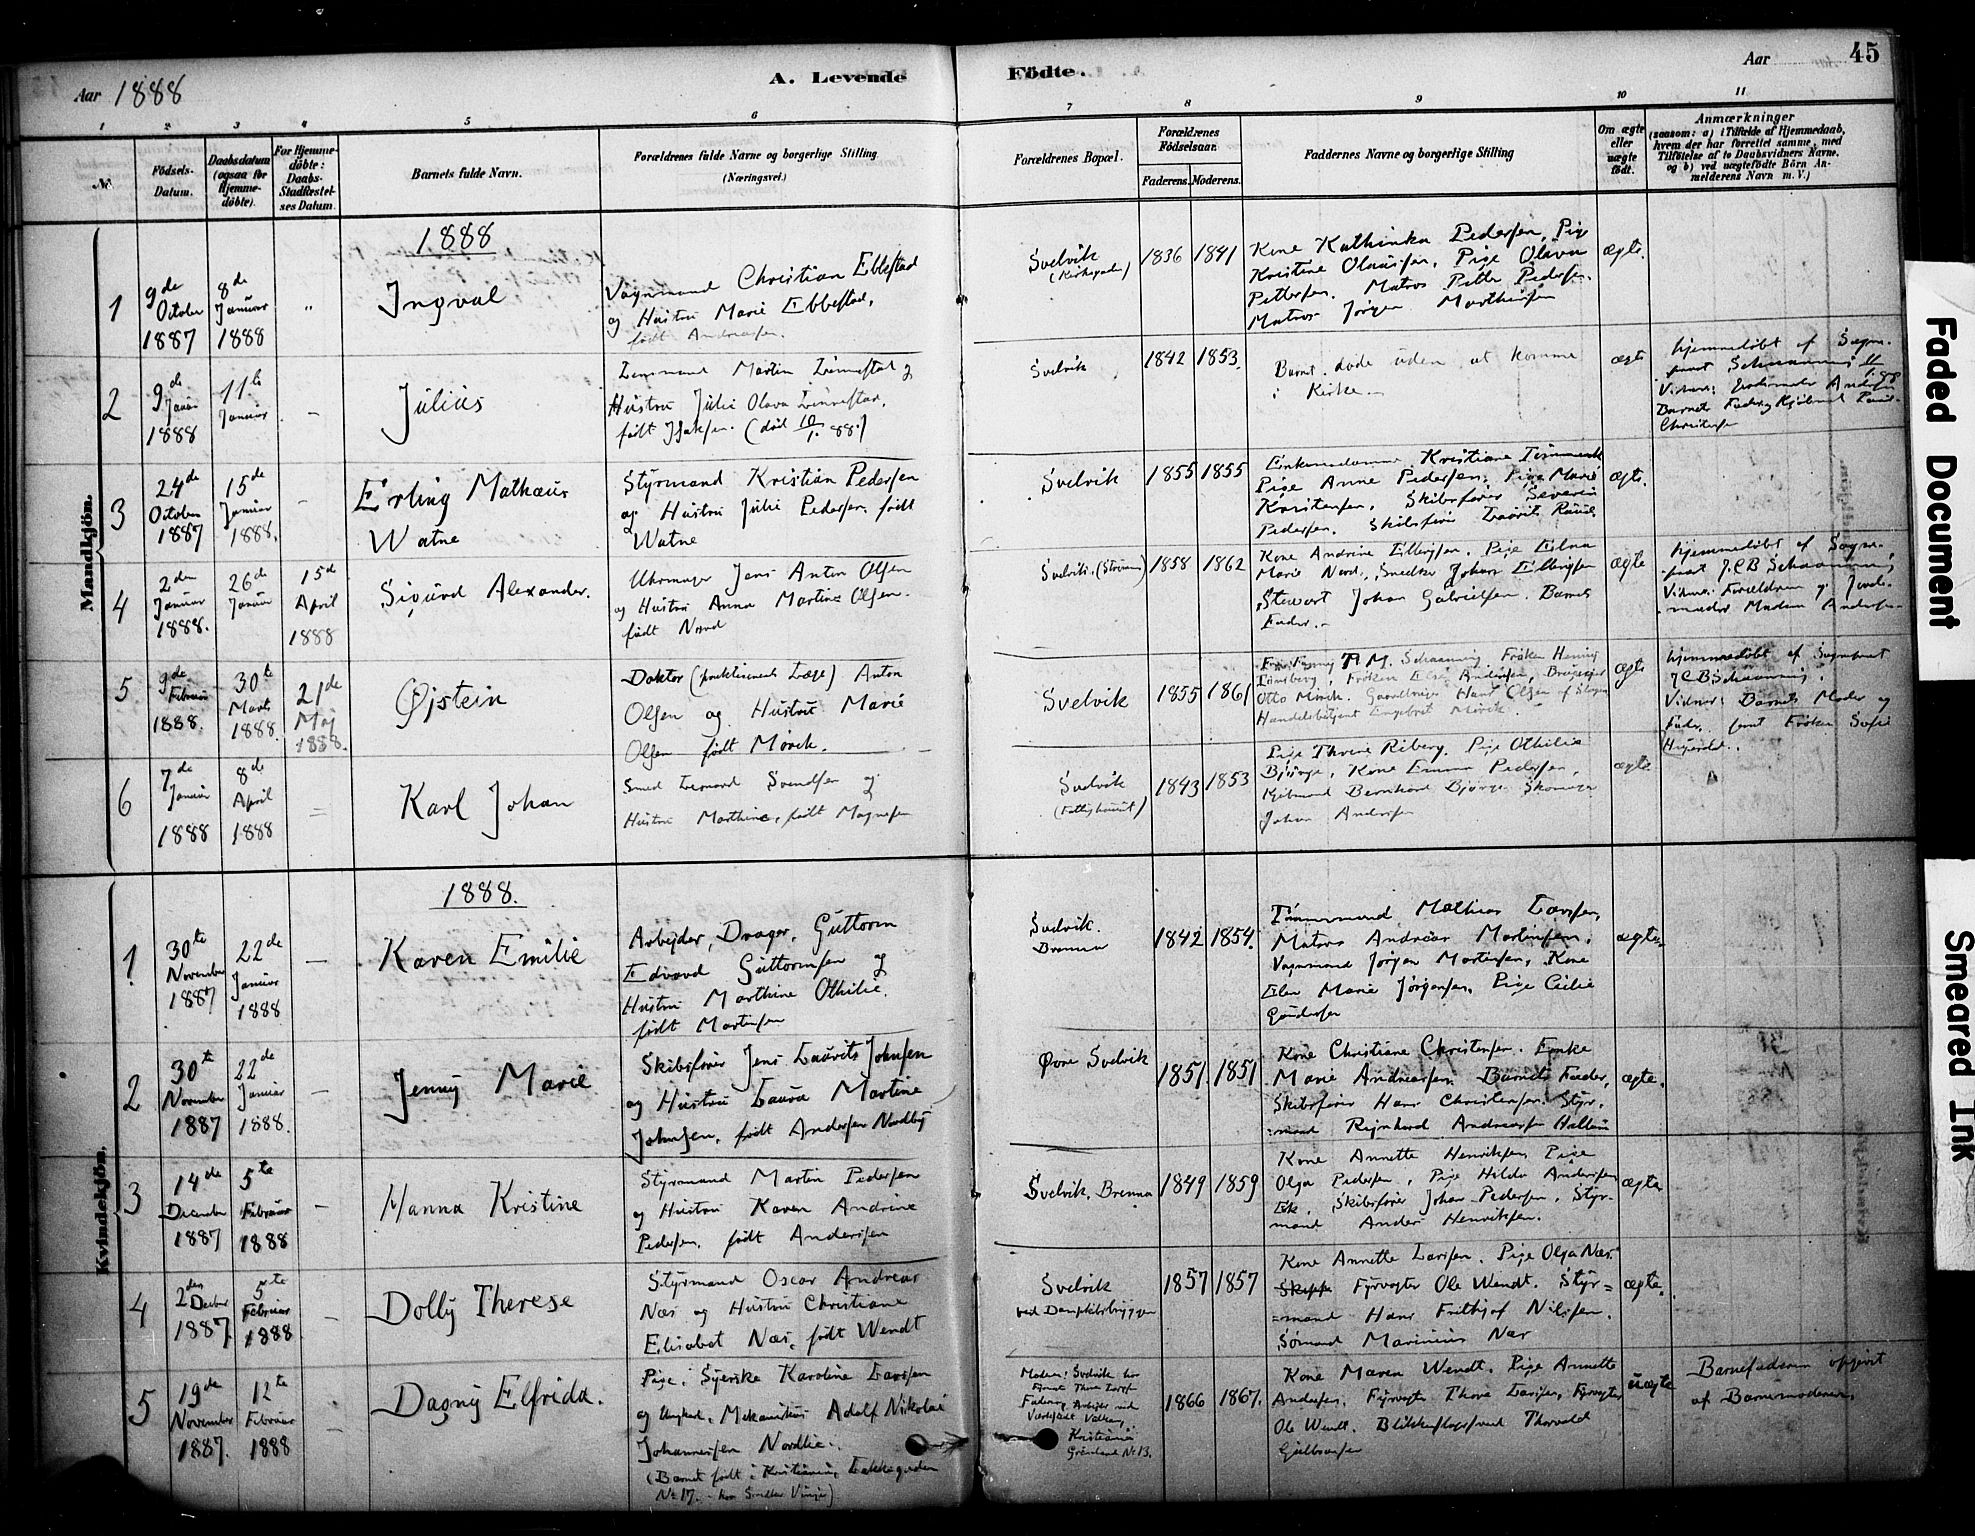 Aar 1888
A. Levende
Födte.
Aar
45
1 2 3 4 5 6 7 8 9 10 11
Nr.
Födsels-
Datum.
Daabsdatum
(ogsaa for
Hjemme-
döbte).
For Hjemme-
döbte:
Daabs-
Stadfæstel-
ses Datum.
Barnets fulde Navn.
Forældrenes fulde Navne og borgerlige Stilling
(Næringsvei.)
Forældrenes Bopæl.
Forældrenes
Födselsaar.
Faderens. Moderens.
Faddernes Navne og borgerlige Stilling
Om ægte
eller
uægte
födt.
Anmærkninger
(saasom: a) i Tilfælde af Hjemmedaab,
hvem der har forrettet samme, med
Tilföielse af to Daabsvidners Navne.
og b) ved uægtefödte Börn An-
melderens Navn m.V.)
Mandkjön.
1888
1
9de
October
1887
8de
Januar
1888
"
Ingval
Vognmand Christian Ebbestad
og Hustru Marie Ebbestad,
født Andreasen.
Svelvik
(Kirkegaden)
1836 1841
Kone Kathinka Pedersen, Pige
Kristine Olaussen, Pige Olava
Pettersen. Matros Petter Pedersen.
Matros Jørgen Marthinsen
ægte.
2
9de
Januar
1888
11te
Januar
Julius
Martin Linnestad og
Hustru Julie Olava Linnestad,
født Isaksen. (død 10/1. 88.)
Svelvik
1842 1853.
Barnet døde uden at komme
i Kirke.
ægte
Hjemmedøbt af Sogne-
præst Schaanning 11/1 88
Vidner: Jordmoder Andersen
Barnets Fader, Kjøbmand
Christensen
3
24de
October
1887
15de
Januar
1888.
Erling Mathæus
Watne
Styrmand Kristian Pedersen
og Hustru Julie Pedersen, født
Watne
Svelvik
1855 1855
Kristiane
Pige Anne Pedersen, Pige Marie
Karstensen, Skibsfører Severin
Pedersen. Skibsfører Laurits
ægte.
4
2den
Januar
1888.
26de
Januar
15de
April
1888
Sigurd Alexander.
Uhrmager Jens Anton Olsen
og Hustru Anna Martine Olsen.
født Nord
Svelvik. (Strømm)
1858 1862
Kone Andrine Ellingsen. Pige Elina
Marie Nord., Snedker Johan Ellingsen
Stewart Johan Gabrielsen. Barnets
Fader.
ægte
Hjemmedøbt af Sogne-
præst J.C.B Schaanning,
Vidner: Forældrene og Jorde-
moder Madam Andersen
5
9de
Februar
1888.
30te
Marts
1888.
21de
Maj
1888.
Øjstein
Doktor (praktiserende Læge) Anton
Olsen og Hustru Marie
Olsen født Mørck.
Svelvik
1855 1861
Fru Fanny Th M. Schaanning. Frøken Henny
Tønsberg, Frøken Andersen,
Otto Mørch. Hans Olsen af
Handelsbetjent Engebret Mørck.
ægte
Hjemmedøbt af Sognepræst
J.C.B Schaanning.
Vidner: Barnets Moder og
Fader, samt Frøken Sofie
6
7de
Januar
1888
8de
April
1888
Karl Johan
Smed Leonard Svendsen og
Hustru Marthine, født Magnesen
Svelvik
(Fattighuset)
1843 1853
Pige Thrine Riberg. Pige Othilie
Bjørge, Kone Emma Pedersen,
Kjøbmand Bernhard Bjørge. Skomager
Johan Andersen
ægte
Kvindekjön.
1888.
1
30te
November
1887
22de
Januar
1888
Karen Emilie
Arbejder, Drager, Guttorm
Edvard Guttormsen og
Hustru Marthine Othilie.
født Martinsen
Svelvik.
Brenna
1842 1854.
Tømmermand Mathias Larssen,
Matros Andreas Martinsen,
Vognmand Jørgen Mortensen, Kone
Elen Marie Jørgensen, Pige Cecilie
Gundersen
ægte
2
30te
November
1887
22de
Januar
1888.
Jenny Marie
Skibsfører Jens Laurits Johnsen
og Hustru Laura Martine
Johnsen, født Andersen Nordby
Øvre Svelvik
1851. 1851
Kone Christiane Christensen. Enke
Marie Andreasen. Barnets Fader,
Skibsfører Hans Christensen. Styr-
mand Reinhard Andreasen
ægte.
3
14de
December
1887
5te
Februar
1888
Hanna Kristine
Styrmand Martin Pedersen
og Hustru Karen Andrine
Pedersen, født Andersen
Svelvik, Brenna
1849 1859
Kone Annette Henriksen Pige
Olga Pedersen, Pige Hilda Andersen
Ek. Skibsfører Johan Pedersen, Styr-
mand Anders Henriksen.
ægte
4
2den
Decbr
1887.
5te
Februar
1888
Dolly Therese
Styrmand Oscar Andreas
Næs og Hustru Christiane
Elisabet Næs, født Wendt
Svelvik
ved Dampskibsbryggen
1857 1857
Kone Annette Larssen, Pige Olga Næs.
Fyrvogter Ole Wendt. Styr=
=mand Hans Frithjof Nilssen.
Sømand Marinius Næs
ægte.
5
19de
November
1887.
12te
Februar
1888
Dagny Elfrida.
Pige: Syerske Karoline Larssen
og Ungkarl. Mekanikus Adolf Nikolai
Johannessen Nordlie.
(Barnet født i Kristiania, Lakkegaden
No 17. - hos Snedker Vinje)
Moder: Svelvik hos
Thore Larssen
Faderen: Arbejder ved
Værksted Vulkan,
Kristiania
Grønland No 13.
1866 1867.
Kone Maren Wendt. Pige Annette
Andersen. Fyrvogter Thore Larssen, Fyrvogter
Ole Wendt. Blikkenslagersvend Thorvald
Gulbransen
uægte
Barnefaderen opgivet
af Barnemoderen.
Faded Document
Smeared Ink